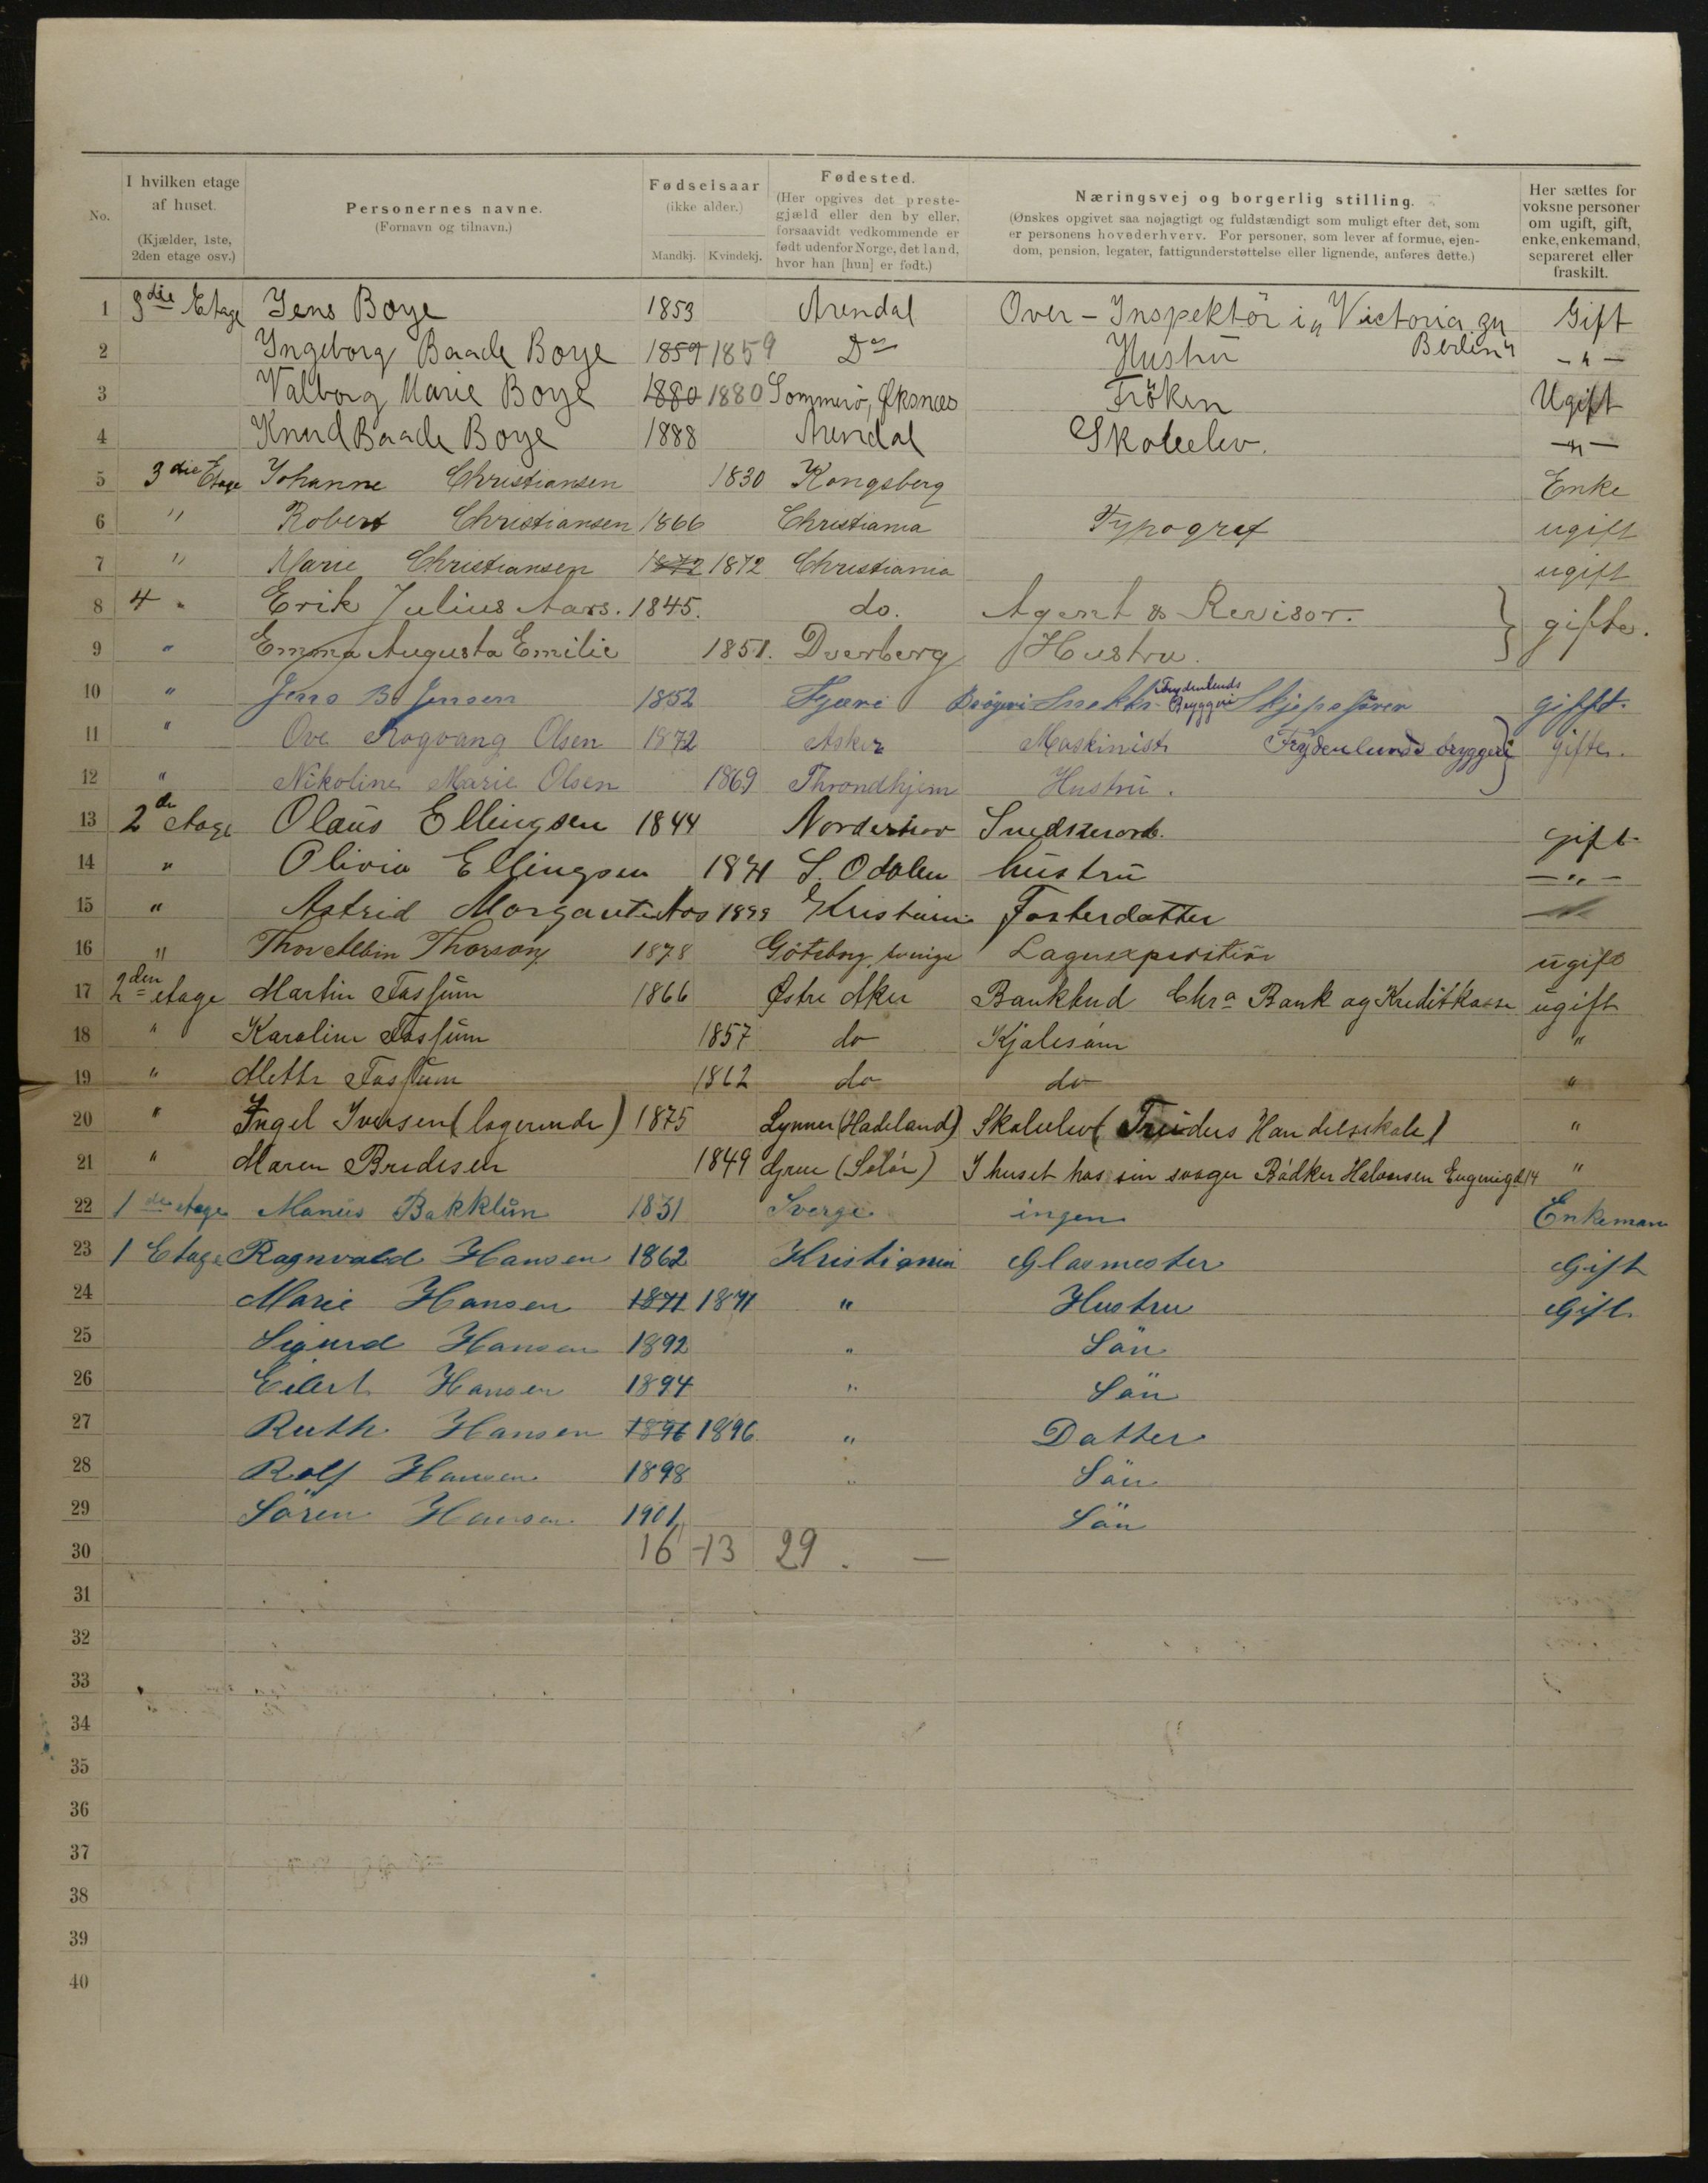 No.
I hvilken etage af huset. (Kjælder, 1ste, 2den etage osv.)
Personernes navne. (Fornavn og tilnavn.)
Fødselsaar (ikke alder.) Mandkj. Kvindekj.
Fødested. (Her opgives det prestegjæld eller den by eller, forsaavidt vedkommende er født udenfor Norge, det land, hvor han [hun] er født.)
Næringsvej og borgerlig stilling. (Ønskes opgivet saa nøjagtigt og fuldstændigt som muligt efter det, som er personens hovederhverv. For personer, som lever af formue, ejendom, pension, legater, fattigunderstøttelse eller lignende, anføres dette.)
Her sættes for voksne personer om ugift, gift, enke, enkemand, separeret eller fraskilt.
1 3die Etage Jens Boye 1853 Arendal Over-Inspektör i „Victoria zu Berlin" Gift
2 Ingeborg Baade Boye 1859 1859 Do Hustrü -"-
3 Valborg Marie Boye 1880 1880 Sommerö, Øksnæs Fröken Ugift
4 Knud Baade Boye 1888 Arendal Skoleelev. -"-
5 3die Etage Johanne Christiansen 1830 Kongsberg Enke
6 " Robert Christiansen 1866 Christiania Typograf ugift
7 " Marie Christiansen 1872 1872 Christiania ugift
8 4 " Erik Julius Aars. 1845. do. Agent & Revisor. } gifte.
9 " Emma Augusta Emilie 1851. Dverberg Hustru.
10 " Jens B. Jensen 1852 Fjære Frydenlunds Bryggeri Skipsfører gifft.
11 " Ove Rogvang Olsen 1872 Asker Maskinist Frydenlunds bryggeri } gifte.
12 " Nikoline Marie Olsen 1869 Throndhjem Hustrü.
13 2de etage Olaüs Ellingsen 1844 Norderhov Snedkerarb. gift
14 " Olivia Ellingsen 1841 S. Odalen hüstrü -"-
15 " Astrid 1899 Kristiania Fosterdatter
16 " Thor Albin Thorson 1878 Göteborg, Sverige Lagerexpeditör ügift
17 2den etage Martin Fossüm 1866 Østre Aker Bankbud Chra Bank og Kreditkasse ügift
18 " Karoline Fossüm 1857 do Kjolesöm "
19 " Mette Fossüm 1862 do do "
20 " Ingel Iversen (logerende) 1875 Lynner (Hadeland) Skoleelev (Treiders Handelsskole) "
21 " Maren Bredesen 1849 Grue (Solör) I huset hos sin svoger Bödker Halvorsen Eugenigd 14 "
22 1ste etage Manüs Bakklün 1831 Sverge ingen Enkeman
23 1 Etage Ragnvald Hansen 1862 Kristiania Glasmester Gift
24 Marie Hansen 1871 1871 " Hustru Gift
25 Sigurd Hansen 1892 " Sön
26 Eilert Hansen 1894 " Sön
27 Ruth Hansen 1896 1896 " Datter
28 Rolf Hansen 1898 " Sön
29 Sören Hansen 1901 Sön
30 16 - 13 29. —
31
32
33
34
35
36
37
38
39
40